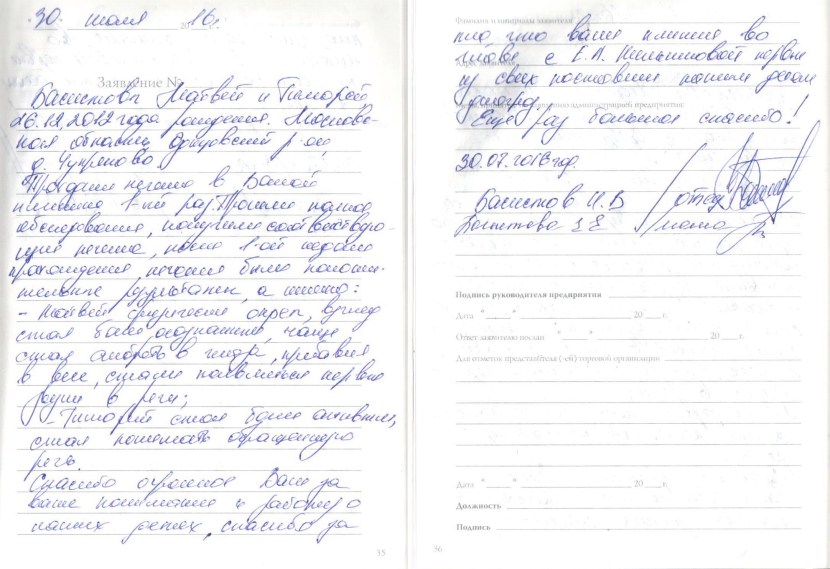 30. июля 2016г.
Заявление №
Басистовы Матвей и Тимофей
26.12.2012 года рождения. Московс-
кая область, Одинцовский р-он
д. Чупряково.
Проходили лечение в Вашей
клинике 1-ый раз. Прошли полное
обследование, получили соответствую-
щее лечение, после 1-ой недели
прохождения, лечения были положи-
тельные результаты, а именно:
- Матвей физически окреп, взгляд
стал более осознанным, чаще
стал смотреть в глаза, прибавил
в весе, стали появляться первые
звуки в речи;
- Тимофей стал более активным,
стал понимать обращенную
речь.
Спасибо огромное Вам за
ваше понимание и работу о
наших детях, спасибо за
35
Фамилия и инициалы заявителя
то, что ваша клиника во
главе с Е.А. первой
из своих поставили нашим детям
диагноз.
администрацией предприятия:
Еще раз большое спасибо!
30.07.2016 год.
Басистов И.В /отец
Басистова Е.Е /мама
Подпись руководителя предприятия
Дата " " 20 г.
Ответ заявителю послан " " 20 г.
Для ответов представителя (-ей) торговой организации
Дата " " 20 г.
Должность
Подпись
36